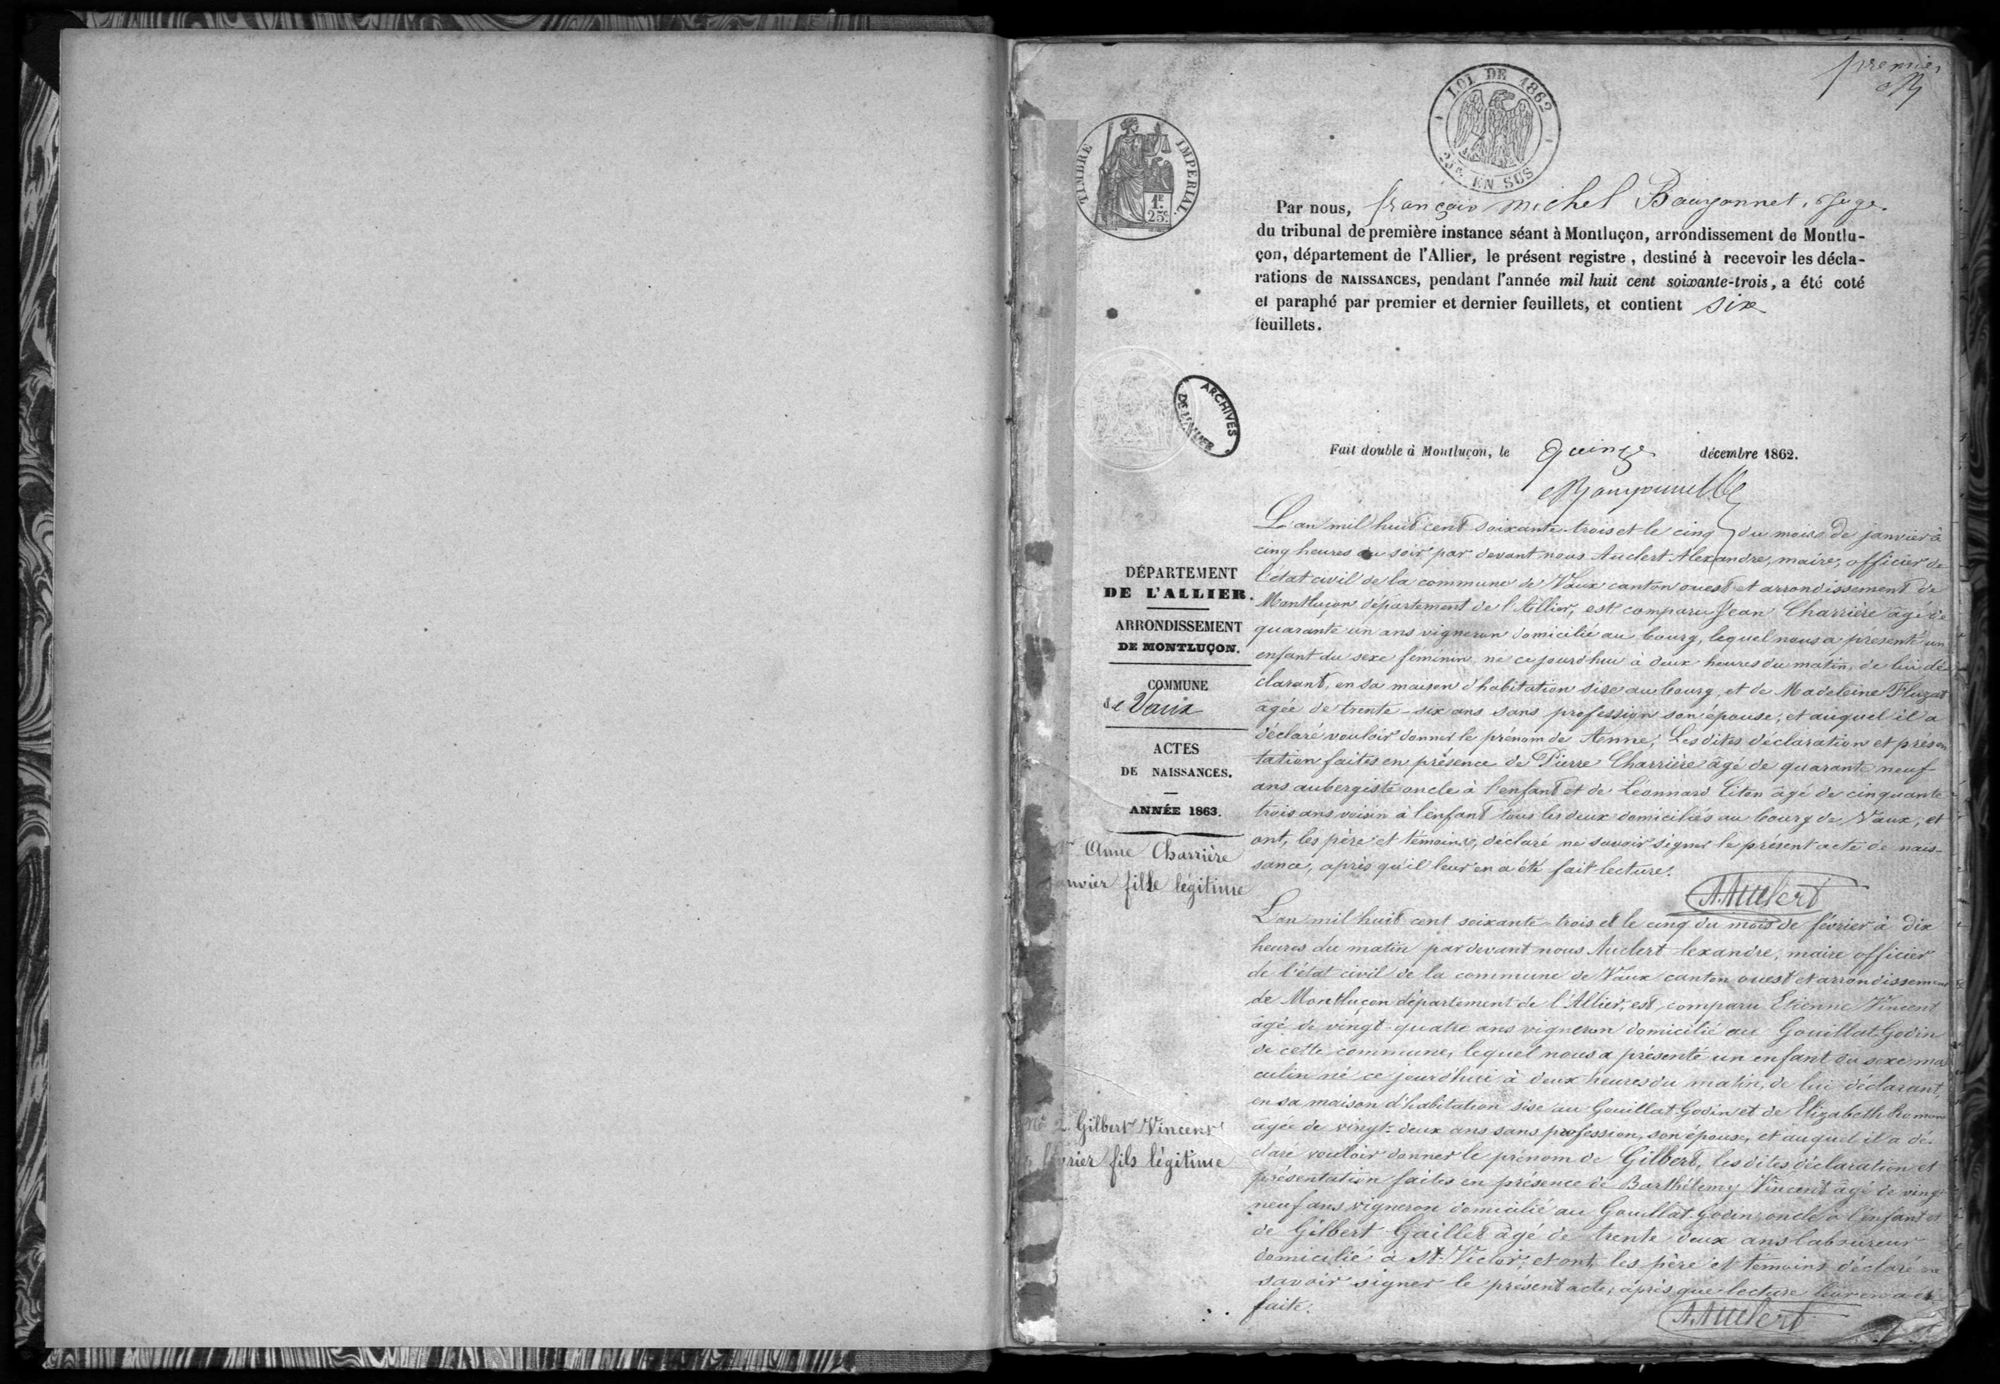 premier
LOI DE 1862
25c. EN SUS
TIMBRE IMPÉRIAL.
1F. 25c.
Par nous, françois michel Bouyonnet, Juge
du tribunal de première instance séant à Montluçon, arrondissement de Montlu-
çon, département de l'Allier, le présent registre, destiné à recevoir les décla-
rations de NAISSANCES, pendant l'année mil huit cent soixante-trois, a été coté
et paraphé par premier et dernier feuillets, et contient six
feuillets.
ARCHIVES
DE L'ALLIER
Fait double à Montluçon, le quinze décembre 1862.
DÉPARTEMENT
DE L'ALLIER.
ARRONDISSEMENT
DE MONTLUÇON.
COMMUNE
de Vaux
ACTES
DE NAISSANCES.
ANNÉE 1863.
Anne Charrière
janvier fille légitime
L'an mil huit cent soixante-trois et le cinq du mois de janvier à
cinq heures du soir par devant nous Auclert Alexandre, maire, officier de
l'état civil de la commune de Vaux canton ouest et arrondissement de
Montluçon département de l'Allier, est comparu Jean Charrière âgé de
quarante un ans vigneron domicilié au bourg, lequel nous a présenté un
enfant du sexe féminin, né ce jourd'hui à deux heures du matin, de lui dé
clarant, en sa maison d'habitation sise au bourg, et de Madeleine Fluzat
âgée de trente-six ans sans profession son épouse, et auquel il a
déclaré vouloir donner le prénom de Anne; Les dites déclaration et présen
tation faites en présence de Pierre Charrière âgé de quarante neuf
ans aubergiste oncle à l'enfant et de Léonnard Liton âgé de cinquante
trois ans voisin à l'enfant tous les deux domiciliés au bourg de Vaux, et
ont, les père et témoins, déclaré ne savoir signer le présent acte de nais-
sance, après qu'il leur en a été fait lecture.
A. Auclert
N° 2 Gilbert Vincent
5 février fils légitime
L'an mil huit cent soixante-trois et le cinq du mois de février à dix
heures du matin par devant nous Auclert lexandre, maire officier
de l'état civil de la commune de Vaux canton ouest et arrondissement
de Montluçon département de l'Allier, est comparu Etienne Vincent
âgé de vingt-quatre ans vigneron domicilié au Gouillat-Godin
de cette commune, lequel nous a présenté un enfant du sexe mas
culin né ce jourd'hui à deux heures du matin, de lui déclarant,
en sa maison d'habitation sise au Gouillat-Godin et de Elizabeth Romon
âgée de vingt-deux ans sans profession, son épouse, et auquel il a dé-
claré vouloir donner le prénom de Gilbert, les dites déclaration et
présentation faites en présence de Barthélemy Vincent âgé de vingt
neuf ans vigneron domicilié au Gouillat-Godin oncle à l'enfant et
de Gilbert Gaillet âgé de trente deux ans laboureur
domicilié à St. Victor, et ont, les père et témoins déclaré ne
savoir signer le présent acte, après que lecture leur en a été
faite.
A. Auclert